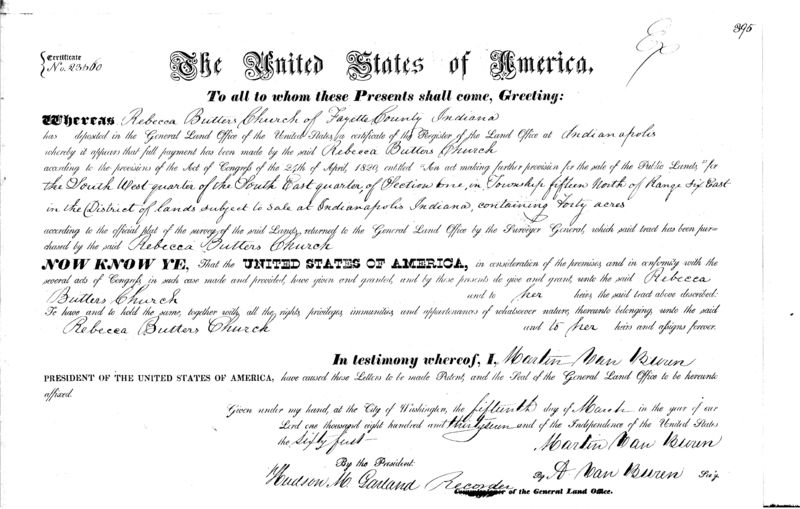 395
Ex
Certificate
No. 23560
The United States of America,
To all to whom these Presents shall come, Greeting:
Whereas Rebecca Butters Church of Fayette County Indiana
has deposited in the General Land Office of the United States, a certificate of the Register of the Land Office at Indianapolis
whereby it appears that full payment has been made by the said Rebecca Butters Church
according to the provisions of the Act of Congress of the 24th of April, 1820, entitled "An act making further provision for the sale of the Public Lands," for
the South West quarter of the South East quarter, of Section one, in Township fifteen North of Range Six East
in the District of lands subject to sale at Indianapolis Indiana, containing Forty acres
according to the official plat of the survey of the said Lands, returned to the General Land Office by the Surveyor General, which said tract has been pur-
chased by the said Rebecca Butters Church
NOW KNOW YE, That the UNITED STATES OF AMERICA, in consideration of the premises, and in conformity with the
several acts of Congress, in such case made and provided, have given and granted, and by these presents do give and grant, unto the said Rebecca
Butters Church and to her heirs, the said tract above described:
To have and to hold the same, together with all the rights, privileges, immunities, and appurtenances of whatsoever nature, thereunto belonging, unto the said
Rebecca Butters Church and to her heirs and assigns forever.
In testimony whereof, I, Martin Van Buren
PRESIDENT OF THE UNITED STATES OF AMERICA, have caused these Letters to be made Patent, and the Seal of the General Land Office to be hereunto
affixed.
Given under my hand, at the City of Washington, the fifteenth day of March in the year of our
Lord one thousand eight hundred and thirty seven and of the Independence of the United States
the Sixty first
Martin Van Buren
By the President:
By A Van Buren Sec'y.
Hudson M. Garland Recorder of the General Land Office.